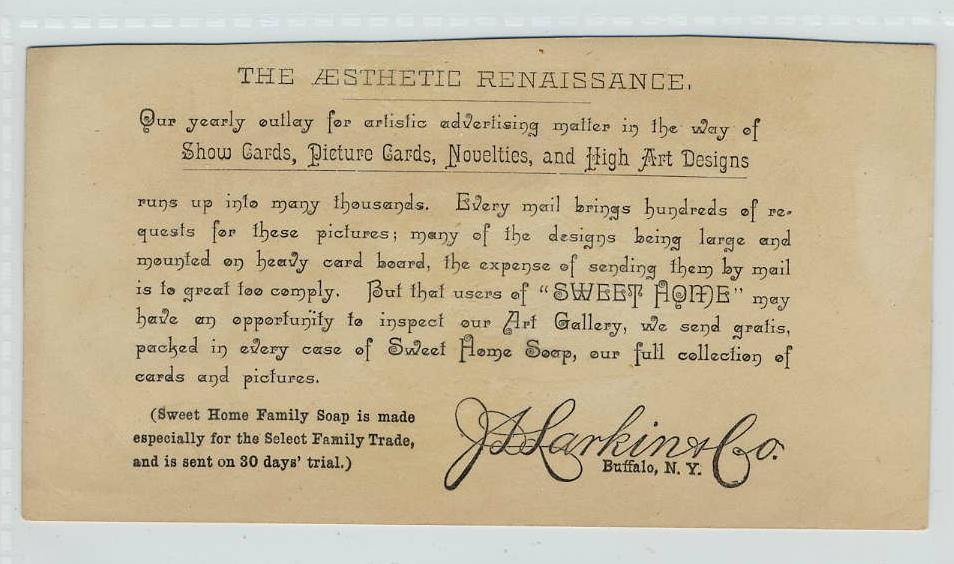 THE ÆSTHETIC RENAISSANCE.
Our yearly outlay for artistic advertising matter in the way of
Show Cards, Picture Cards, Novelties, and High Art Designs
runs up into many thousands. Every mail brings hundreds of re-
quests for these pictures; many of the designs being large and
mounted on heavy card board, the expense of sending them by mail
is to great too comply. But that users of “SWEET HOME” may
have an opportunity to inspect our Art Gallery, we send gratis,
packed in every case of Sweet Home Soap, our full collection of
cards and pictures.
(Sweet Home Family Soap is made
especially for the Select Family Trade,
and is sent on 30 days' trial.)
J.D. Larkin & Co.
Buffalo, N. Y.